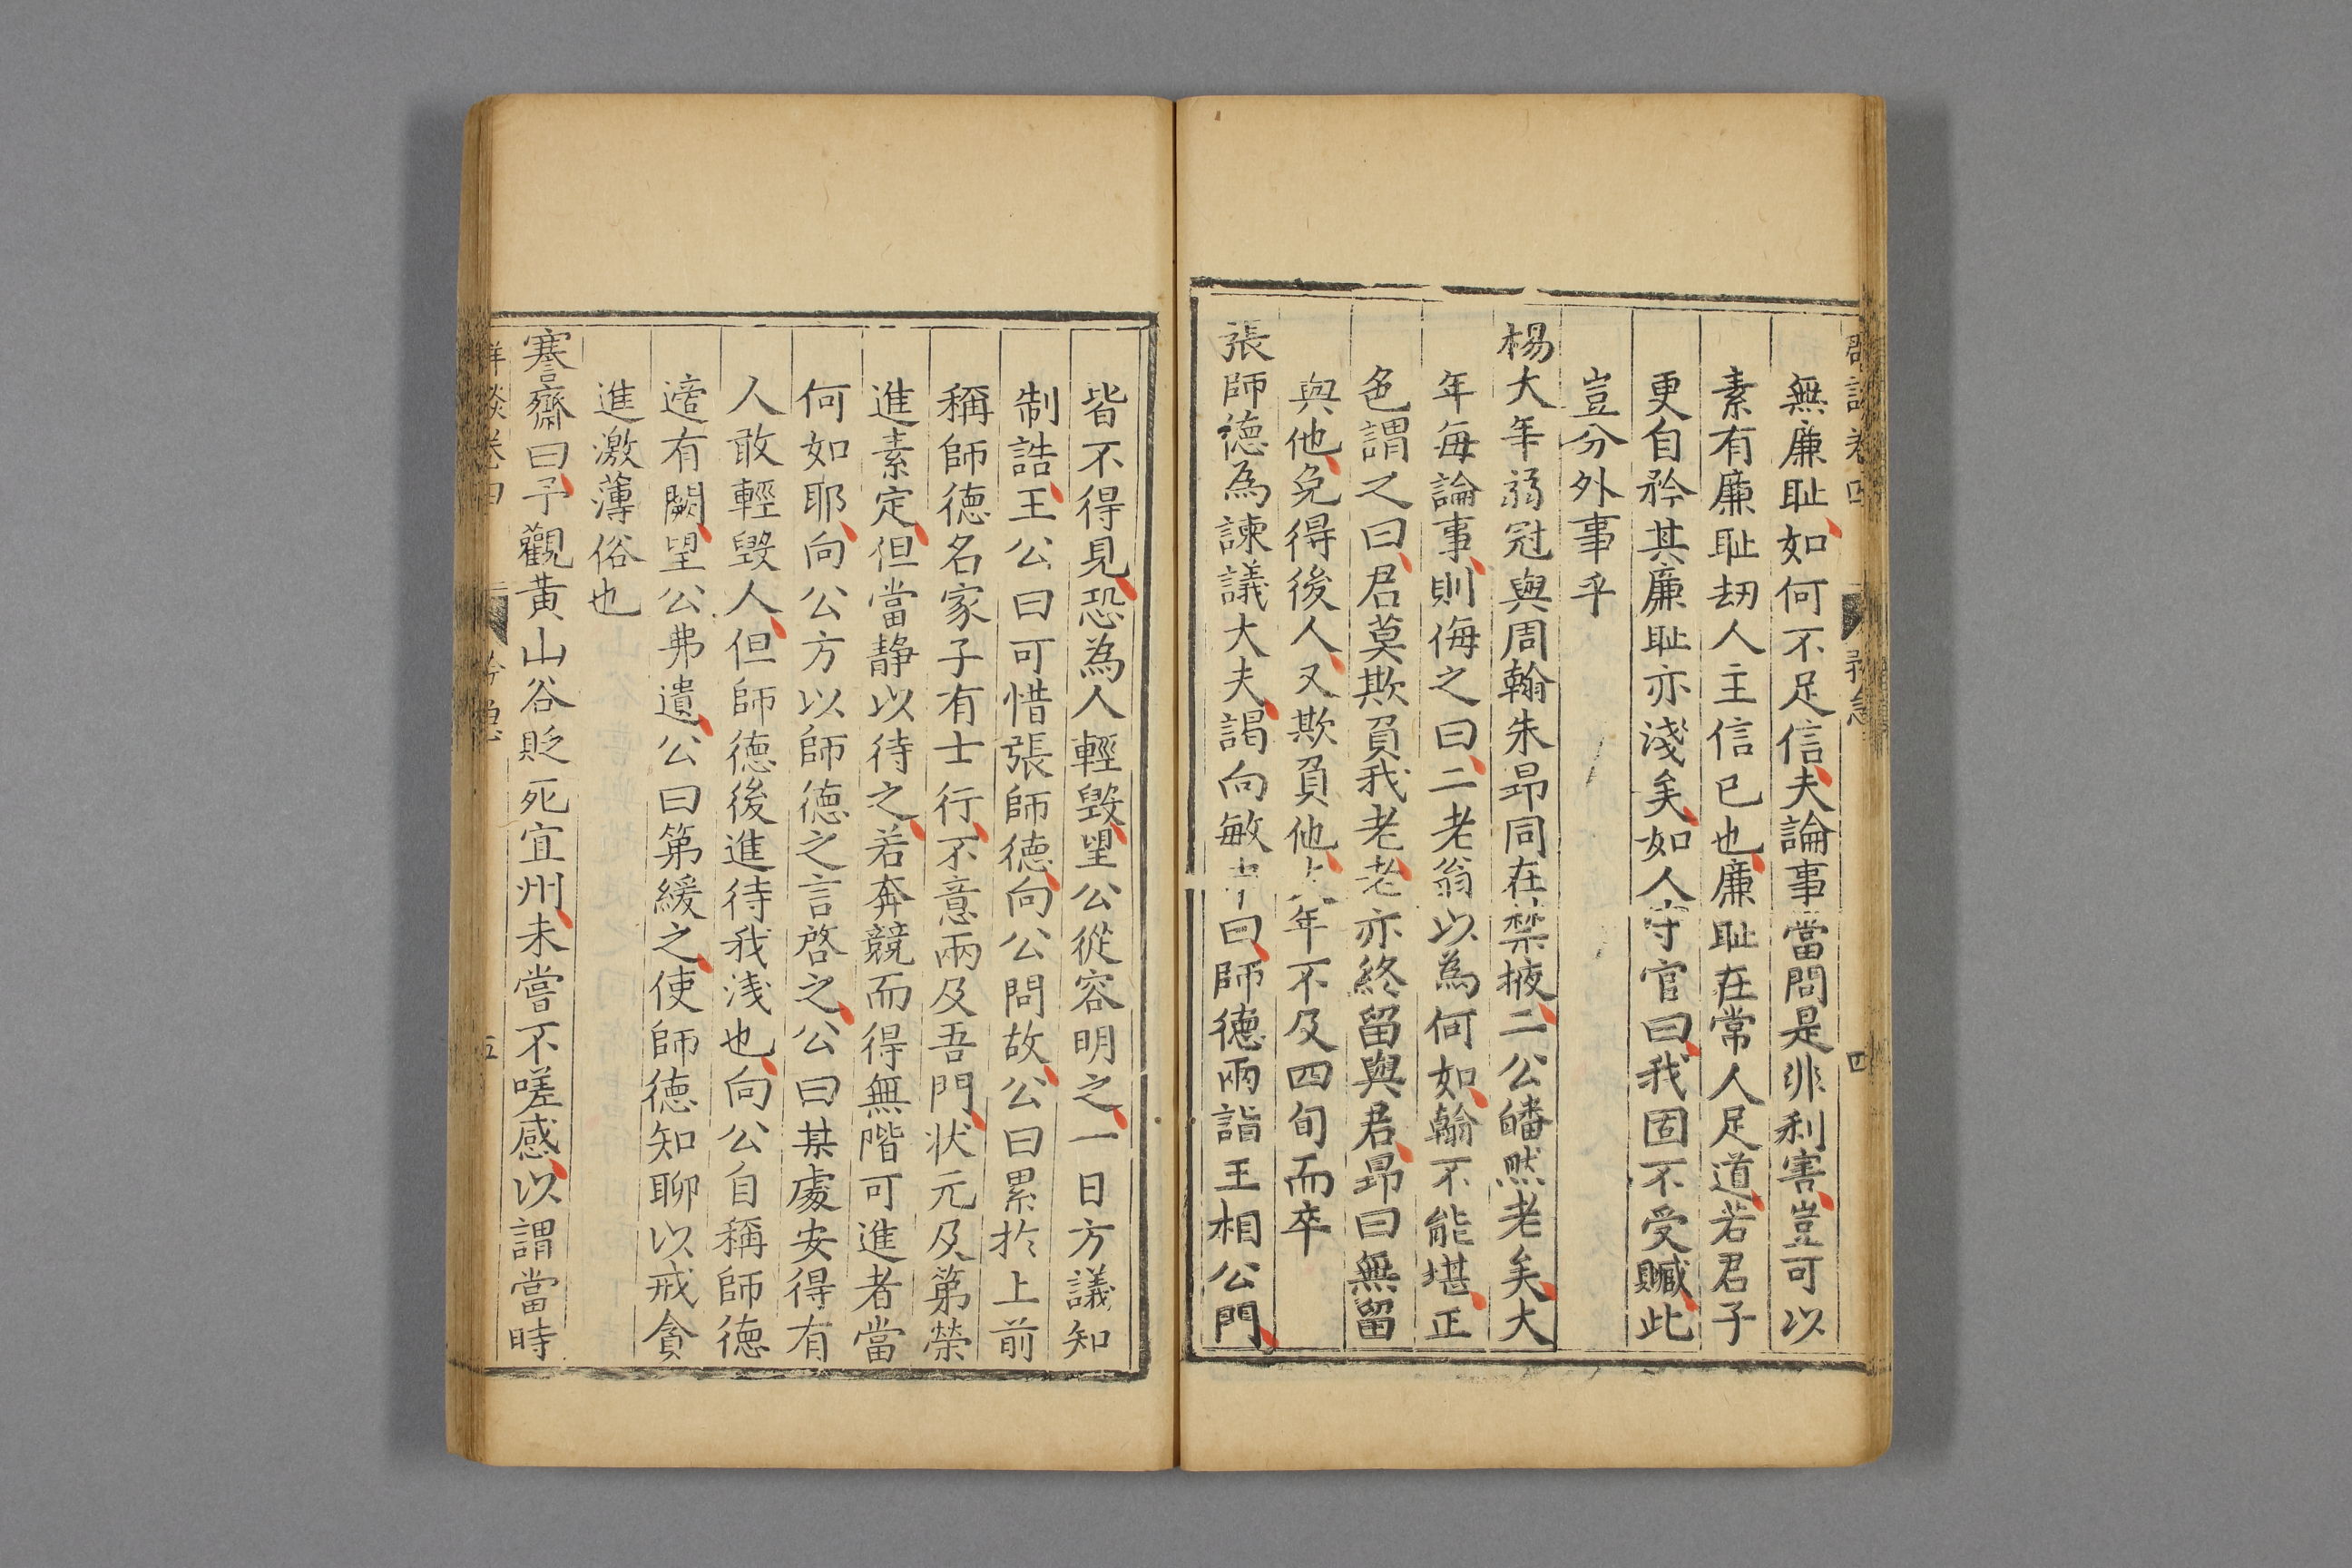 無廉耻如何不足信夫論事當問是非利害豈可以
素有廉耻刼人主信已也廉耻在常人足道若君子
更自矜其廉耻亦淺矣如人守官曰我固不受贓此
豈分外事乎
楊大年弱冠與周翰朱昂同在禁掖二公皤然老矣大
年每論事則侮之曰二老翁以為何如翰不能堪正
色謂之曰君莫欺負我老老亦終留與君昂曰無留
與他免得後人又欺負他大年不及四旬而卒
張師德為諫議大夫謁向敏中曰師德兩詣王相公門
皆不得見恐為人輕毀望公從容明之一日方議知
制誥王公曰可惜張師德向公問故公曰累於上前
稱師德名家子有士行不意兩及吾門状元及第榮
進素定但當静以待之若奔競而得無階可進者當
何如耶向公方以師德之言啓之公曰某處安得有
人敢輕毀人但師德後進待我淺也向公自稱師德
適有闕望公弗遺公曰第緩之使師德知聊以戒貪
進激薄俗也
謇齋曰予觀黃山谷貶死宜州未嘗不嗟感以謂當時